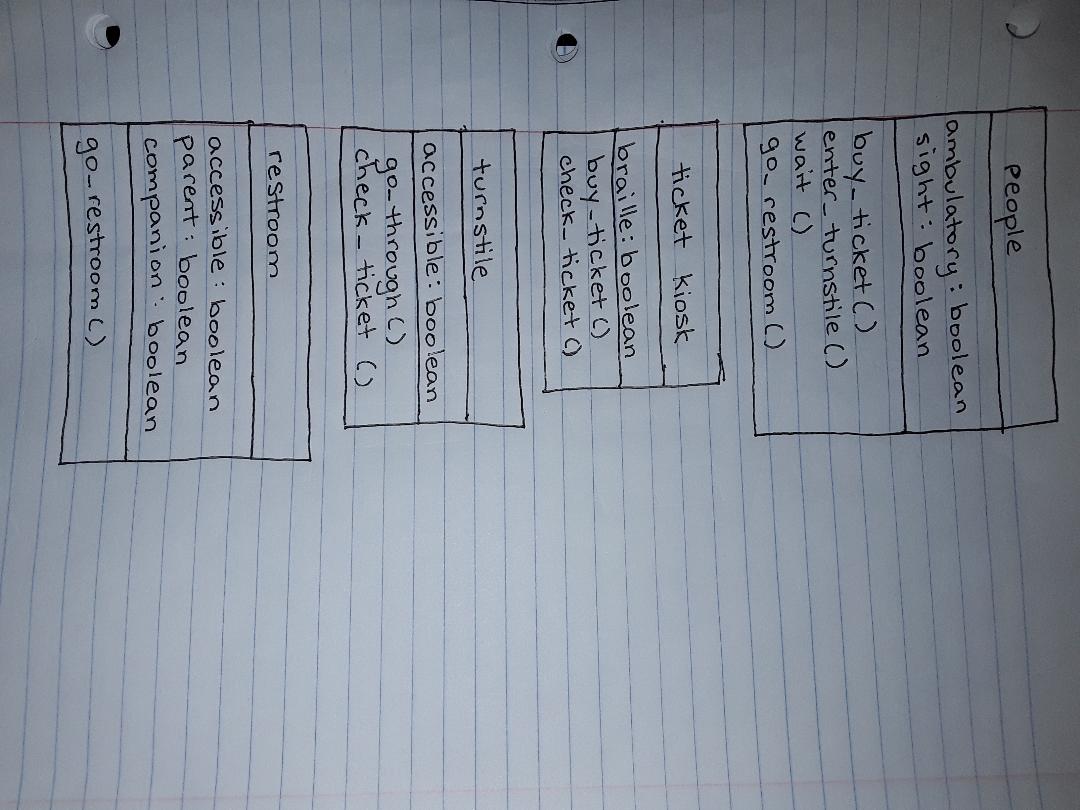 people
ambulatory: boolean
sight: boolean
buy_ticket()
enter_turnstile()
wait ()
go_restroom()
ticket kiosk
braille: boolean
buy_ticket()
check_ticket()
turnstile
accessible: boolean
go_through()
check_ticket ()
restroom
accessible: boolean
parent: boolean
companion: boolean
go_restroom()